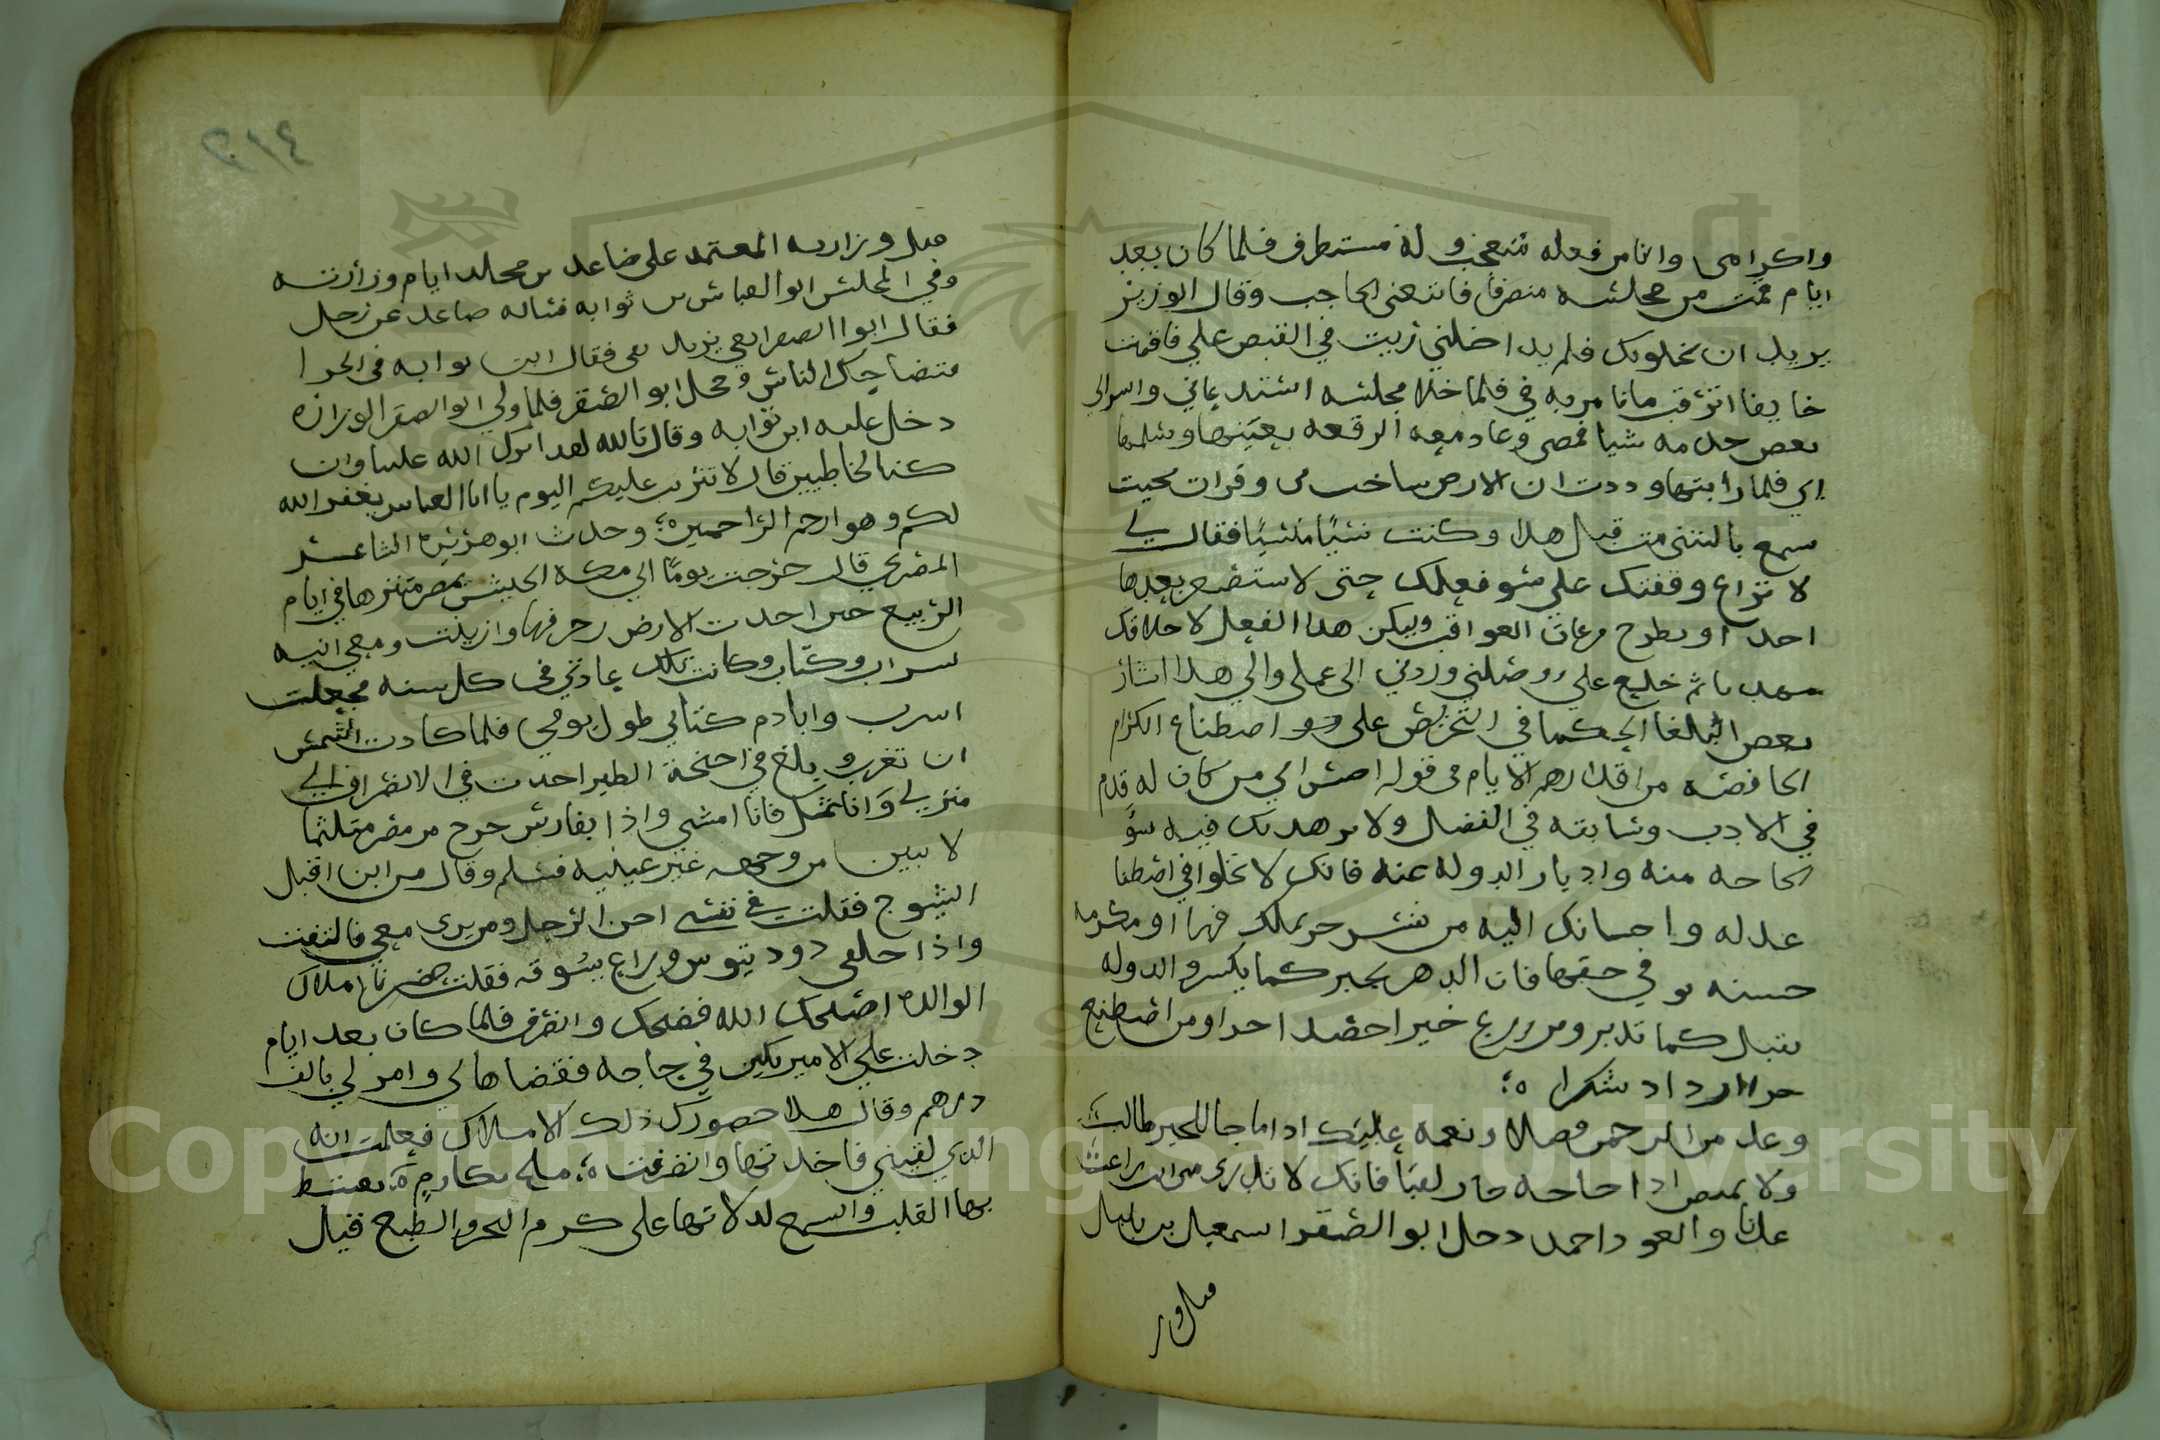 واكرامى وانا من فعله متعجب وله مستطرف فلما كان بعد
ايام قمت من مجلسه منصرفا فاتبعنى الحاجب وقال الوزير
يريد ان يخلو بك فلم يداخلنى ريب في القبض علي فاقمت
خايفا اترقب مايامر به في فلما خلا مجلسه استدعاني واسر الى
بعض خدمه شيا فمضى وعاد معه الرقعه بعينها وسلمها
الي فلما رايتها وددت ان الارض ساخت بي وقرات بحيث
سمع يا ليتني مت قبل هذا وكنت نسيا منسيا فقال لي
لا تراع وقفتك علي سو فعلك حتى لا تستضع بعدها
احدا وبطرح مرعات العواقب وليكن هذا الفعل لاخلاقك
مهذبا ثم خلع علي ووصلني وردني الى عملى والي هذا اشار
بعض البلغا الحكما في التحريض على اصطناع الكرام
الحافضه من اقدارهم الايام في قوله احسن الي من كان له قدم
في الادب وسابقه في الفضل ولا يزهدنك فيه سو
الحاجه منه وادبار الدوله عنه فانك لا تخلوا في اصطنا
عك له واحسانك اليه من نفس حر تملك فيها او مكرمه
حسنه توفي حقها فان الدهر يجبر كما يكسر والدوله
تقبل كما تدبر ومن زرع خيرا حصد اجرا ومن اصطنع
حرا ازداد شكرا ه؛
وعد من الرحمن فضلا ونعمه عليك اذا ما جا للخير طالب
ولا تمنعن ذا حاجه جا راغبا فانك لا تدري متى انت راغب
عدنا والعود احمد دخل ابو الصقر اسمعيل بن بلبل
قبل وز
٢١٤
قبل وزارته المعتمد على صاعد بن مخلد ايام وزارته
وفي المجلس ابو العباس بن ثوابه فساله صاعد عن رجل
فقال ابو الصقر انفي يريد نفى فقال ابن ثوابه في الخرا
فتضاحك الناس وخجل ابو الصقر فلما ولي ابو الصقر الوزاره
دخل عليه ابن ثوابه وقال تالله لقد اثرك الله علينا وان
كنا لخاطيين قال لا تثريب عليكم اليوم يا ابا العباس يغفر الله
لكم وهو ارحم الراحمين ه؛ وحدث ابو هريره الشاعر
المصري قال خرجت يوما الي بركه الحبش بمصر متنزها في ايام
الربيع حين اخذت الارض زخرفها وازينت ومعي انيه
شراب وكتاب وكانت تلك عادتي في كل سنه فجعلت
اشرب وانادم كتابي طول يومي فلما كادت الشمس
ان تغرب ويلغ في اجنحة الطير اخذت في الانصراف الي
منزلي وانا ثمل فانا امشي واذا بفارس خرج من مصر متلثما
لا يبين من وجهه غير عينيه فسلم وقال من اين اقبل
الشيوخ فقلت في نفسي اجن الرجل ومن يرى معي فالتفت
واذا خلفي دود تيوس وراع يسوقه فقلت حضرنا املاك
الوالده اصلحك الله فضحك وانصرف فلما كان بعد ايام
دخلت علي الامير تكين في حاجه فقضاها لي وامر لي بالف
درهم وقال هذا حضورك ذلك الاملاك فعلمت انه
الذي لقيني فاخذتها وانصرفت ه؛ ملح مكارم ه؛ يغتبط
بها القلب والسمع لدلالتها على كرم النجر والطبع قيل